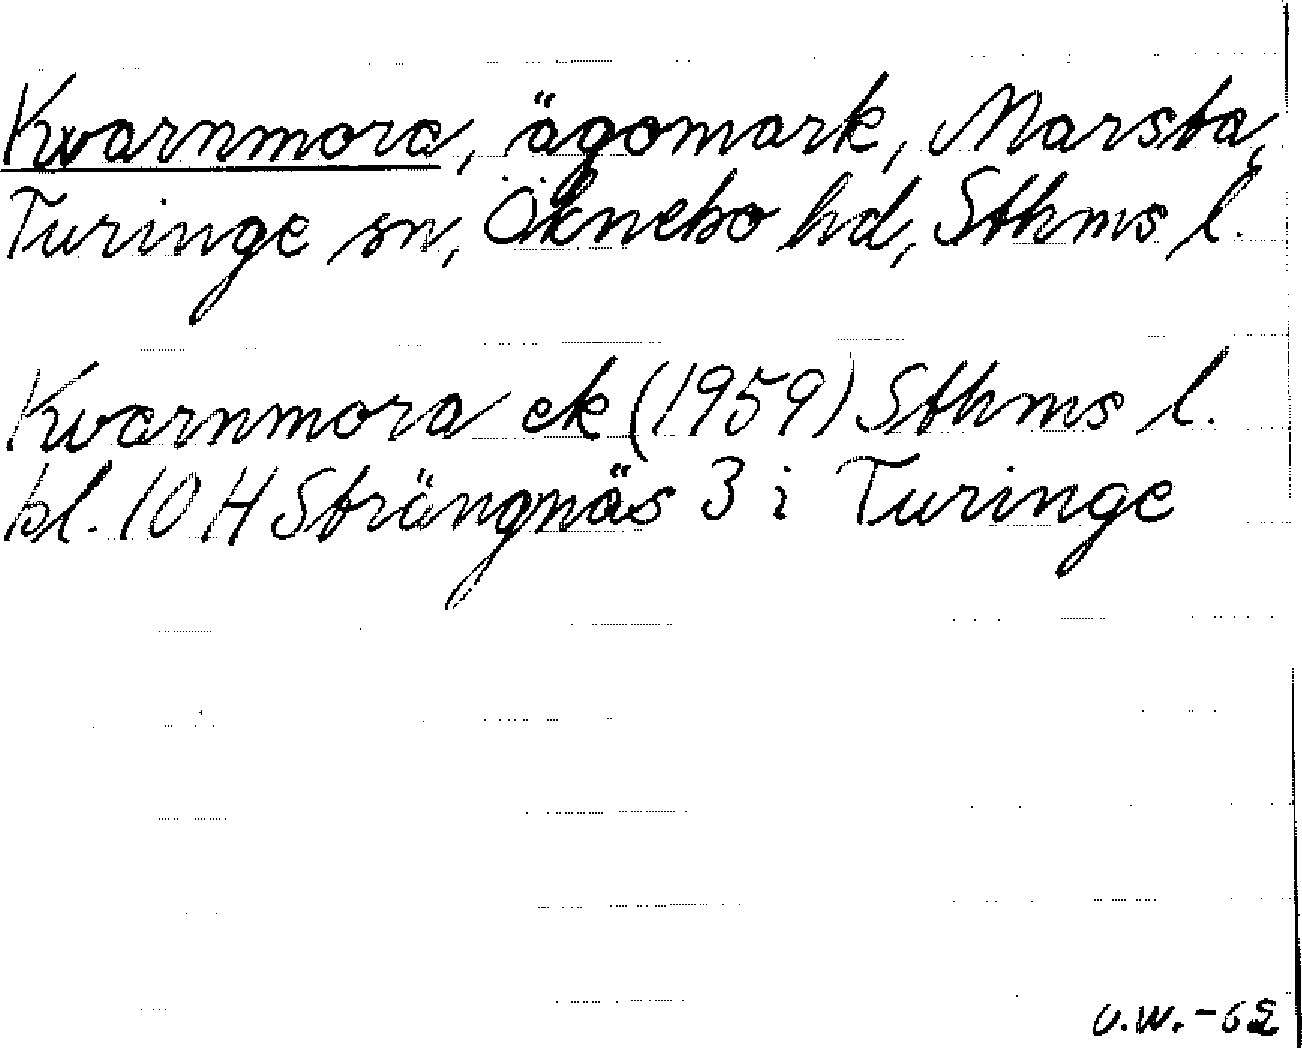 Kvarnmora, ägomark, Marsta,
Turinge sn, Öknebo hd, Sthms l.
Kvarnmora ek (1959) Sthms l.
bl. 10 H Strängnäs 3 i Turinge
U.W.-62